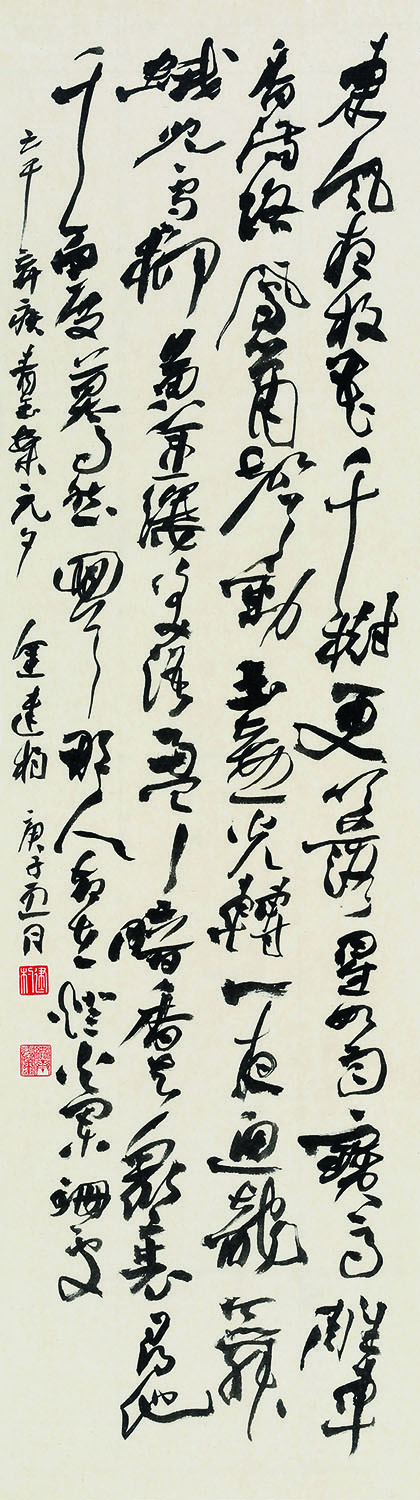 東風夜放花千樹更吹落星如雨寶馬雕車
香滿路鳳簫聲動玉壺光轉一夜魚龍舞
蛾兒雪柳黃金縷笑語盈盈暗香去衆裏尋他
千百度驀然回首那人却在燈火闌珊處
辛疾青玉案元夕 金建 庚子五月